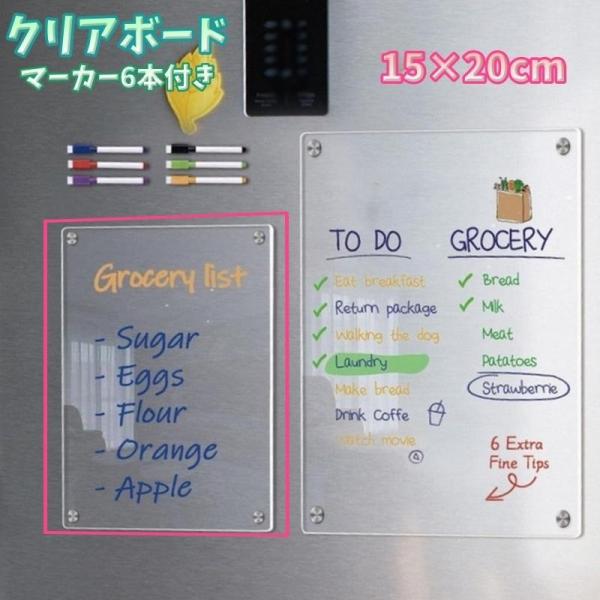 クリアボード
マーカー6本付き
15×20cm
Grocery list
- Sugar
- Eggs
- Flour
- Orange
- Apple
TO DO
Eat breakfast
Return package
Walking the dog
Laundry
Make bread
Drink Coffe
Watch movie
GROCERY
Bread
Milk
Meat
Patatoes
Strawberrie
6 Extra
Fine Tips